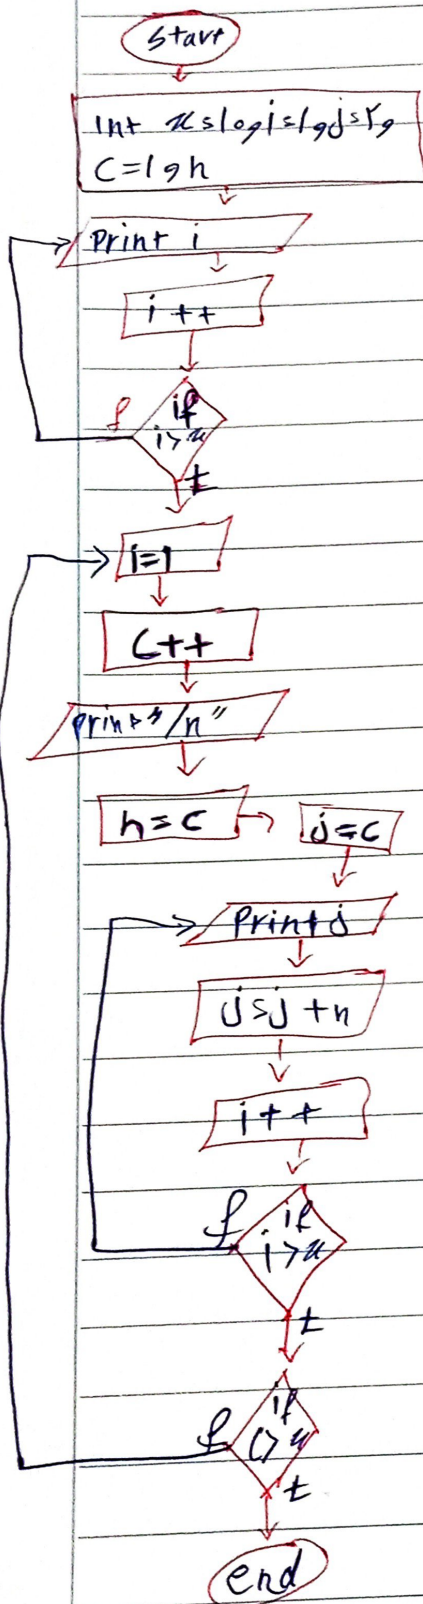 start
int x=10, i=1, j=2,
C=1, n
print i
i++
if
i>x
f
t
i=1
C++
print"/n"
n=c
j=c
print j
j=j+n
i++
if
i>x
f
t
if
c>x
f
t
end